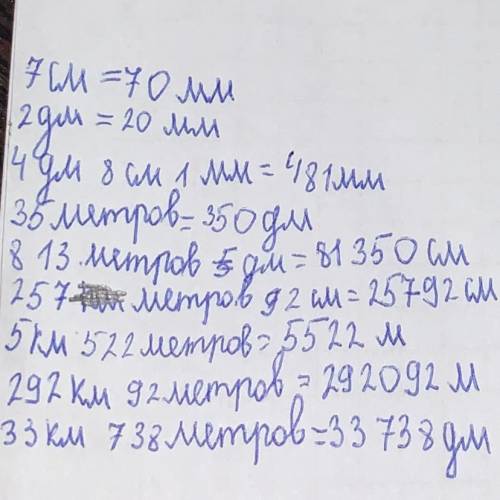 7 см = 70 мм
2 дм = 20 мм
4 дм 8 см 1 мм = 481мм
35 метров = 350 дм
813 метров 5 дм = 81350 см
257 метров 92 см = 25792 см
5 км 522 метров = 5522 м
292 км 92 метров = 292092 м
33 км 738 метров = 33 738 дм